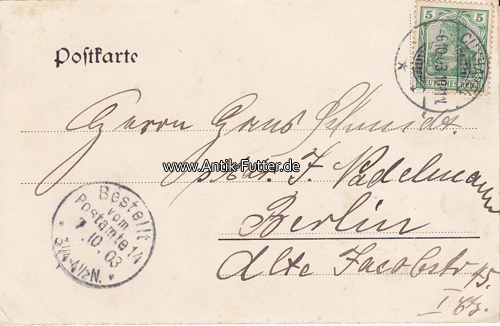 Postkarte
5
5
6.10.03
Herrn Hans Schmidt.
www.Antik-Futter.de
J. Nadelmann
Berlin
Alte Jacobstr
45.
I
Bestellt
vom
Postamte 14
7.10.03
3¼-4½N.